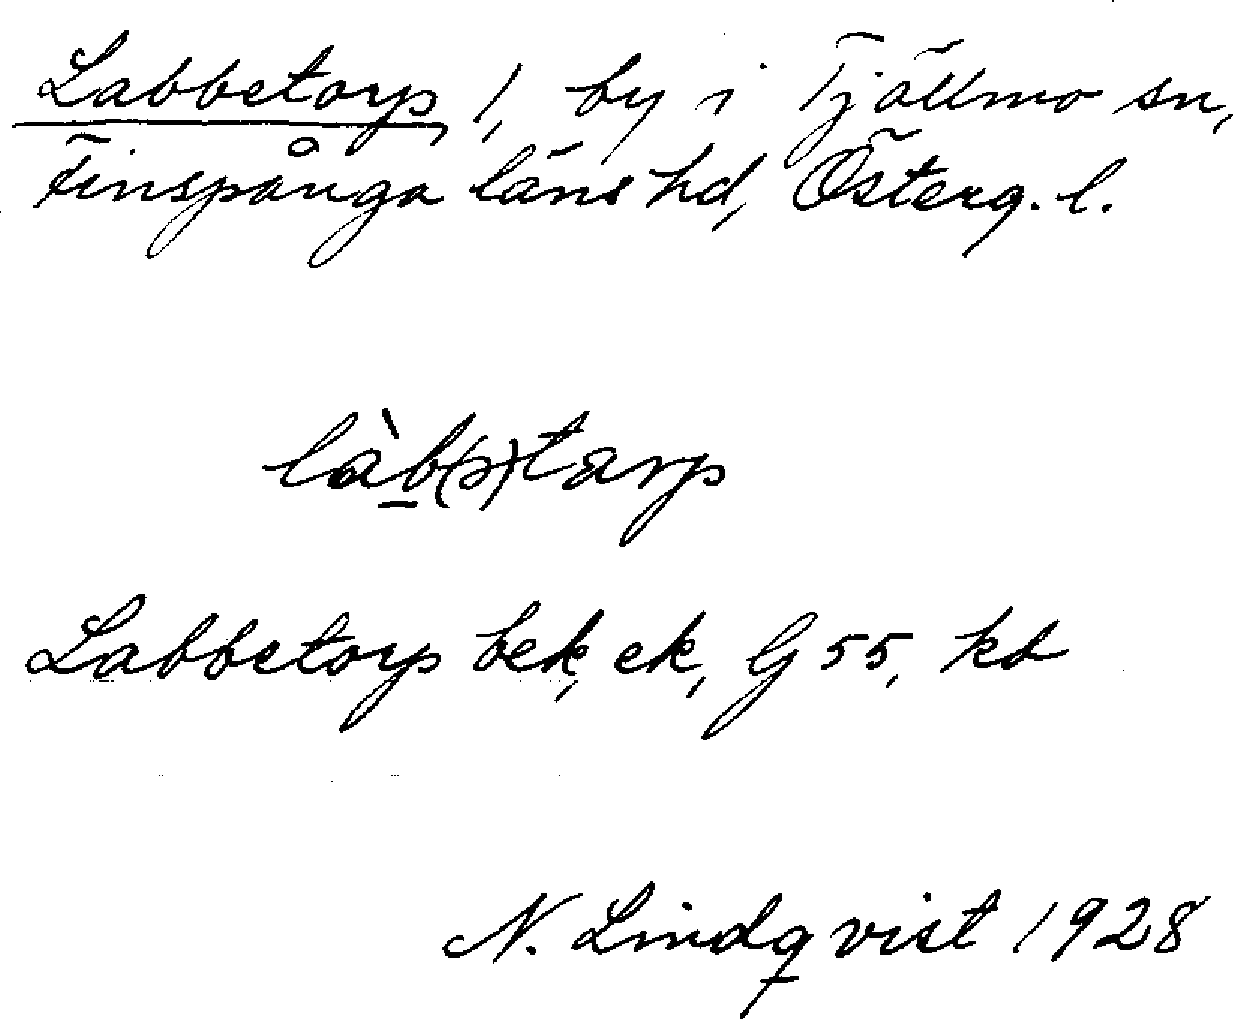 Labbetorp, 1, by i Tjällmo sn,
Finspånga läns hd, Österg. l.
làb(ə)tarp
Labbetorp bek, ek, G 55, kb
N. Lindqvist 1928